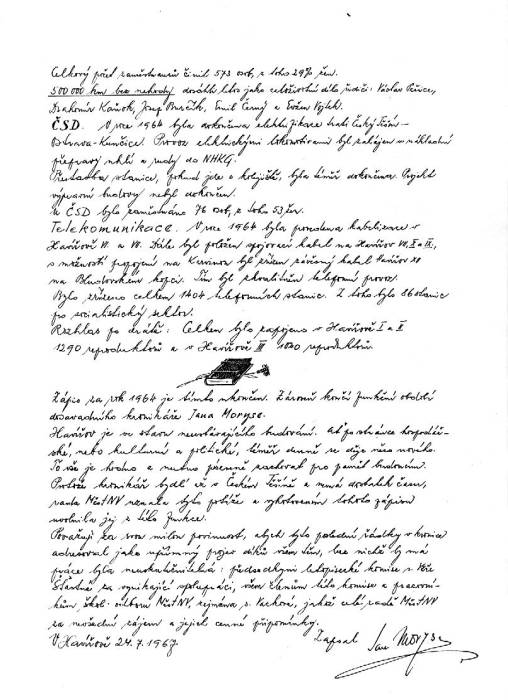 Celkový počet zaměstnanců činil 573 osob, z toho 297 žen.
500 000 km bez nehody dosáhli letos jako celoživotní dílo řidiči: Václav
Drahomír Josef Emil Černý a Evžen
ČSD. V roce 1964 byla dokončena elektrifikace trati Český Těšín-
Ostrava-Kunčice. Provoz elektrickými lokomotivami byl zahájen v nákladní
přepravy uhlí a rudy do NHKG.
Přestavba stanice, pokud jde o kolejiště, byla téměř dokončena. Projekt
výpravní budovy nebyl dokončen.
U ČSD bylo zaměstnáno 76 osob, z toho 53 žen.
Telekomunikace. V roce 1964 byla provedena kabelizace v
Havířově VI. a VII. Dále byl položen spojovací kabel na Havířov
s možností propojení na Karvinou byl zřízen závěsný kabel Havířov
na Bludovickém kopci. Tím byl zkvalitněn telefonní provoz.
Bylo zřízeno celkem 1404 telefonních stanic. Z toho bylo 86 stanic
pro socialistický sektor.
Rozhlas po drátě: Celkem bylo zapojeno v Havířově I a II
1290 reproduktorů a v Havířově III 1020 reproduktorů.
Zápis za rok 1964 je tímto ukončen. Zároveň končí funkční období
dosavadního kronikáře Jana Moryse.
Havířov je ve stavu neutuchajícího budování. Ať po stránce hospodář-
ské, nebo kulturní a politické, téměř denně se děje něco nového.
To vše je hodno a nutno písemně zachovat pro paměť budoucím.
Protože kronikář bydlí už v Českém Těšíně a nemá dostatek času,
rada MěstNV uznala tyto potíže a vyhotovením tohoto zápisu
uvolnila jej z této funkce.
Považuji za svou milou povinnost, abych tyto poslední řádky v kronice
adresoval jako upřímný projev díků všem těm, bez nichž by má
práce byla neuskutečnitelná: předsedkyni letopisecké komise s.
Šťastné za vynikající spolupráci, všem členům této komise a pracovní-
kům, škol. odboru MěstNV, zejména s. Vackové, jakož i celé radě MěstNV
za neobyčejný zájem a jejich cenné připomínky.
V Havířově 24.7.1967. Zapsal Jan Moryse